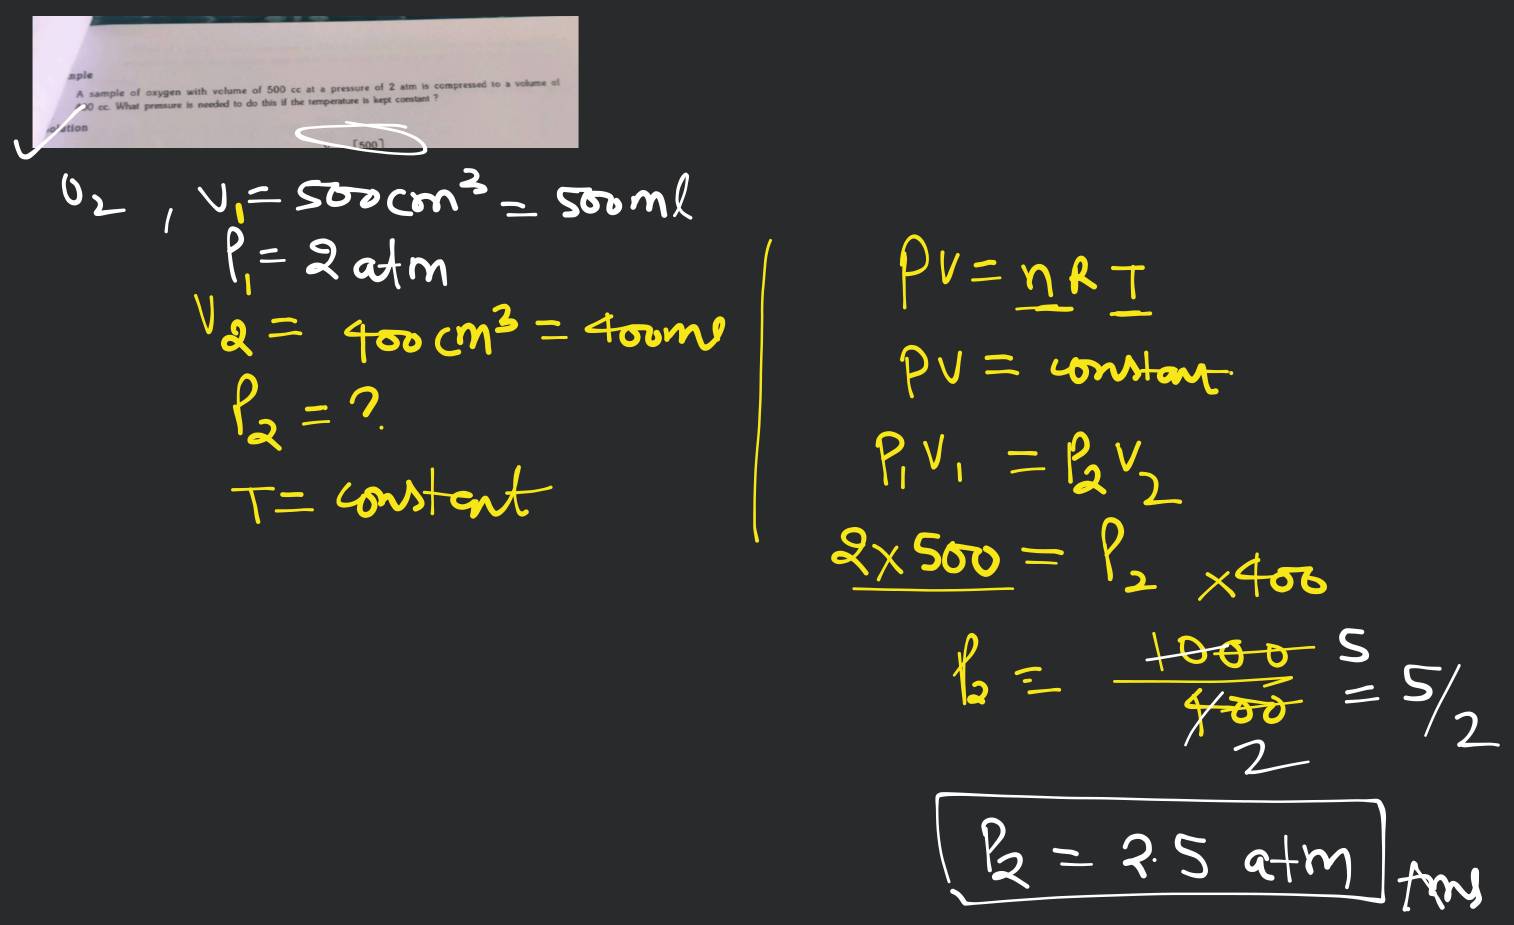 mple
A sample of oxygen with volume of 500 cc at a pressure of 2 atm is compressed to a volume of
00 cc. What pressure is needed to do this if the temperature is kept constant ?
olution
[500]
O₂ , V₁ = 500 cm³ = 500 ml
P₁ = 2 atm
V₂ = 400 cm³ = 400 ml
P₂ = ?
T = constant
PV = nRT
PV = constant
P₁V₁ = P₂V₂
2 × 500 = P₂ × 400
P₂ = 1000/400 5 2 = 5/2
P₂ = 2.5 atm Ans